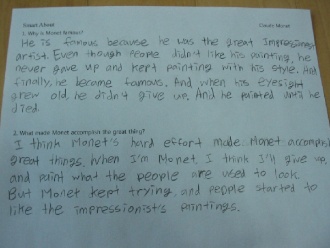 Claude Monet
1. Why is Monet famous?
He is famous because he was the great Impressionist
artist. Even though people didn't like his painting, he
never gave up and kept painting with his style. And
finally, he became famous. And when his eyesight
grew old, he didn't give up. And he painted until he
died.
2. What made Monet accomplish the great thing?
I think Monet's hard effort made Monet accomplish
great things. When I'm Monet, I think I'll give up,
and paint what the people are used to look.
But Monet kept trying, and people started to
like the impressionist's paintings.